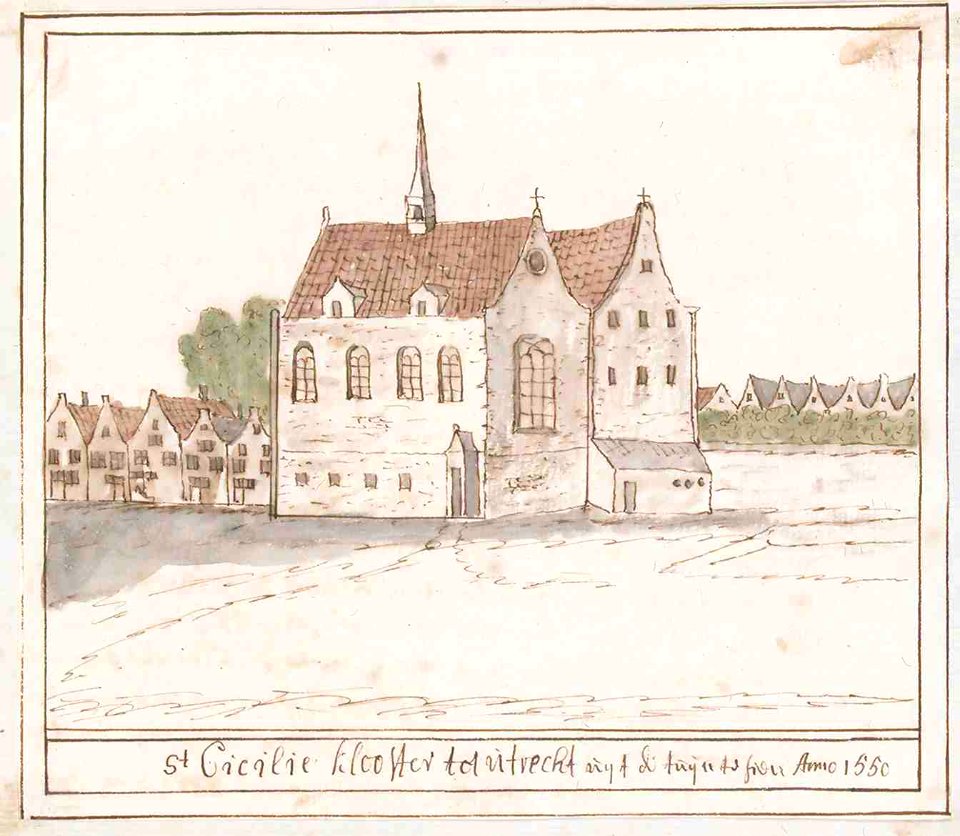 st Cicilie klooster tot utrecht uijt de tuijn te sien Anno 1550